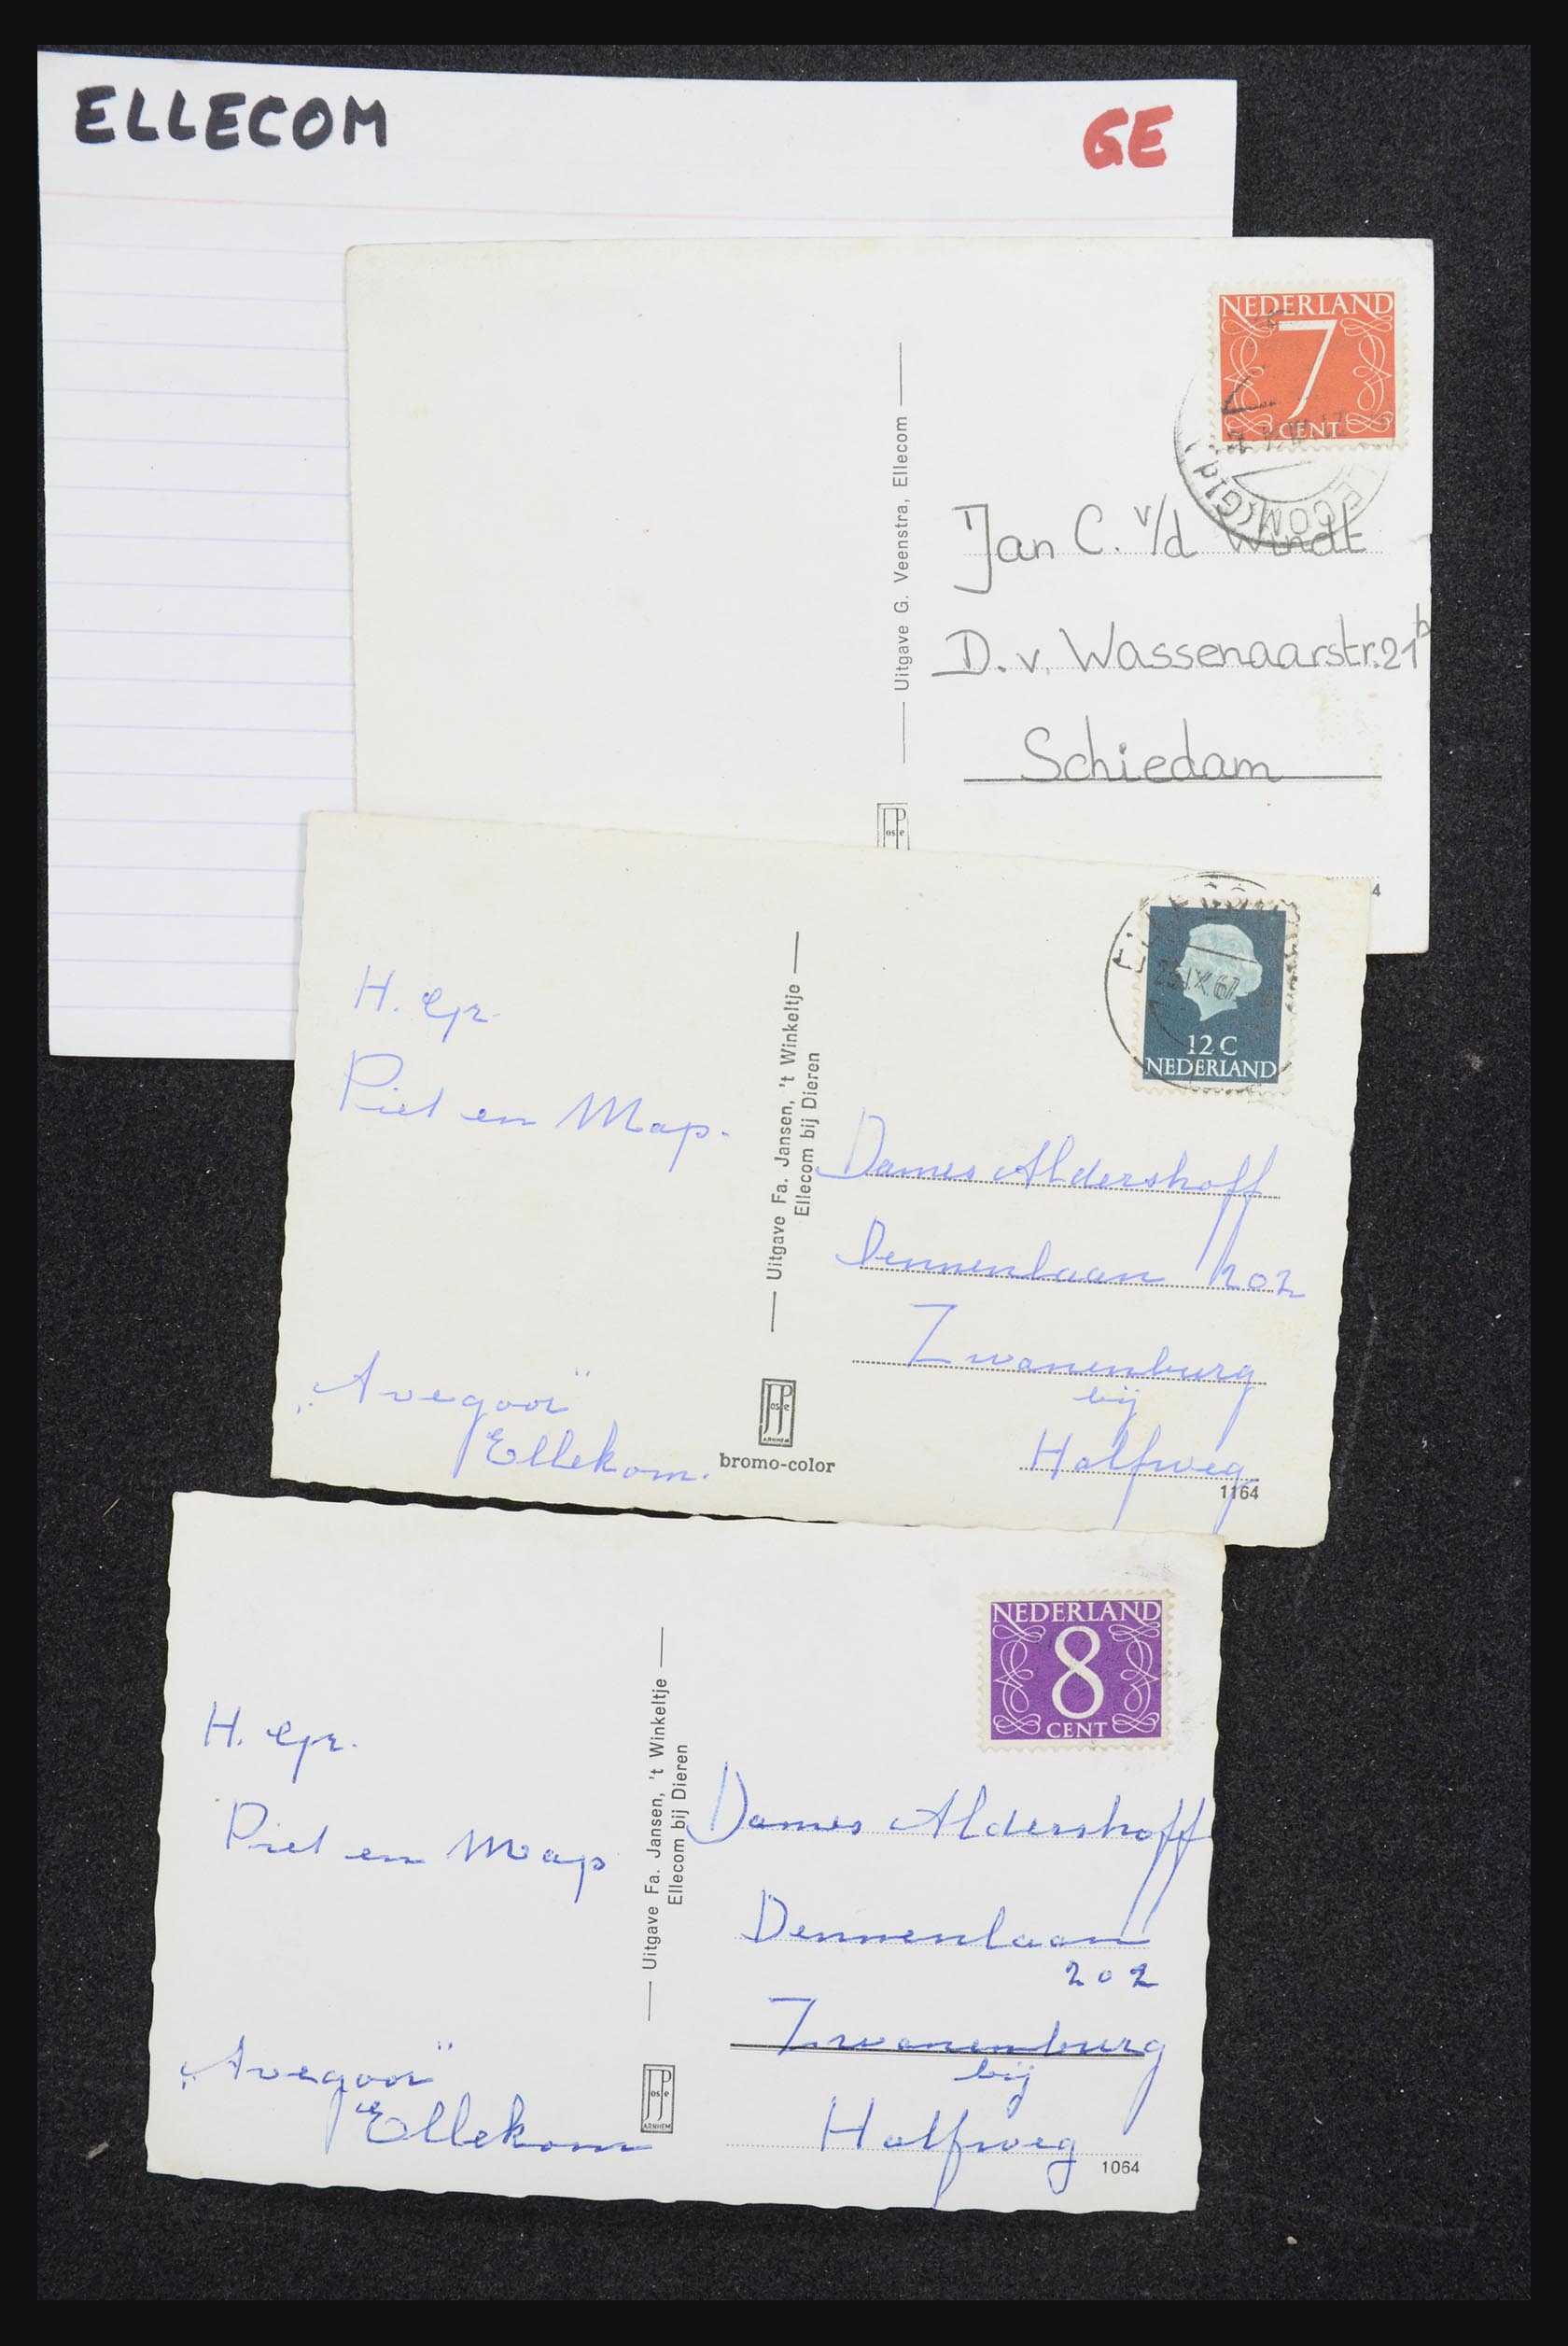 ELLECOM
GE
NEDERLAND
7
CENT
ECOM(GLD
Uitgave G. Veenstra, Ellecom
Jan C. v/d Windt
D. v. Wassenaarstr. 21b
Schiedam
JP
os e
4
12 C
NEDERLAND
IX.67
H. gr.
Piet en Map.
Uitgave Fa. Jansen, 't Winkeltje
Ellecom bij Dieren
Dames Aldershoff
Dennenlaan 202
Zwanenburg
bij
Halfweg
„Avegoor"
Ellekom.
JP
os e
ARNHEM
bromo-color
1164
NEDERLAND
8
CENT
H. gr.
Piet en Map
Uitgave Fa. Jansen, 't Winkeltje
Ellecom bij Dieren
Dames Aldershoff
Dennenlaan
202
Zwanenburg
bij
Halfweg
„Avegoor"
Ellekom
JP
os e
ARNHEM
1064